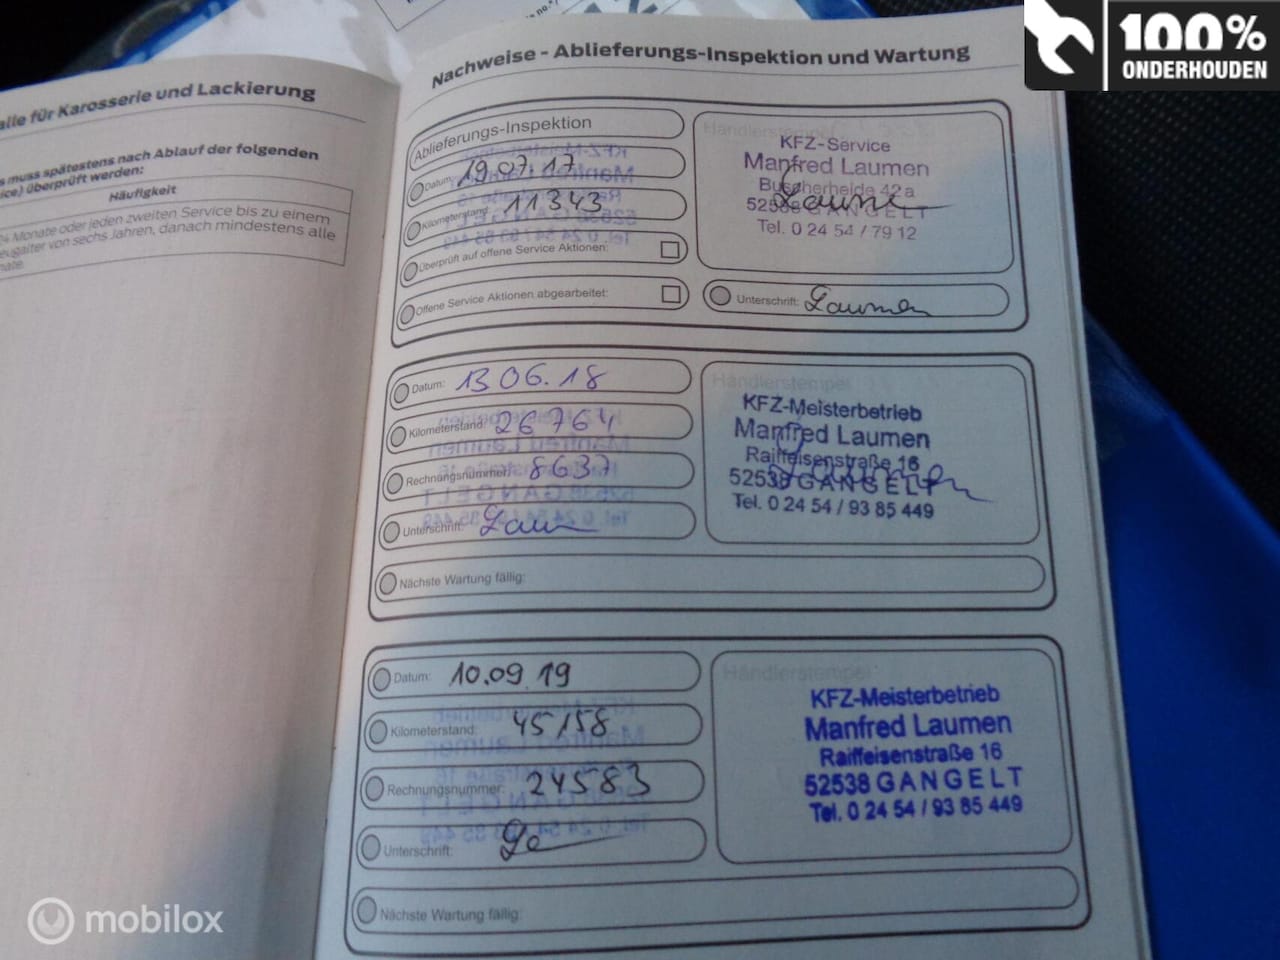 100%
ONDERHOUDEN
alle für Karosserie und Lackierung
s muss spätestens nach Ablauf der folgenden
überprüft werden:
Häufigkeit
24 Monate oder jeden zweiten Service bis zu einem
von sechs Jahren, danach mindestens alle
Nachweise - Ablieferungs-Inspektion und Wartung
Ablieferungs-Inspektion
Datum: 19.07.17
Kilometerstand: 11343
Überprüft auf offene Service Aktionen:
Offene Service Aktionen abgearbeitet:
Händlerstempel
KFZ-Service
Manfred Laumen
Buscherheide 42a
52538 GANGELT
Tel. 0 24 54 / 79 12
Unterschrift: Laumen
Datum: 13 06.18
Kilometerstand: 26764
Rechnungsnummer: 8637
Unterschrift:
Nächste Wartung fällig:
Händlerstempel
KFZ-Meisterbetrieb
Manfred Laumen
Raiffeisenstraße 16
52538 GANGELT
Tel. 0 24 54 / 93 85 449
Datum: 10.09.19
Kilometerstand: 45158
Rechnungsnummer: 24583
Unterschrift:
Nächste Wartung fällig:
Händlerstempel
KFZ-Meisterbetrieb
Manfred Laumen
Raiffeisenstraße 16
52538 GANGELT
Tel. 0 24 54 / 93 85 449
mobilox